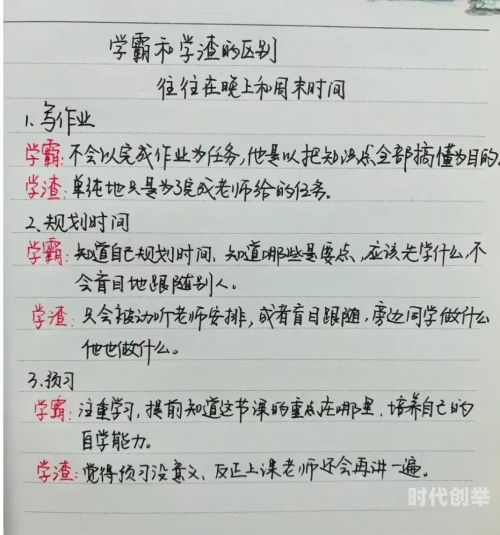 学霸和学渣的区别
往往在晚上和周末时间
1、写作业
学霸:不会以完成作业为任务,他是以把知识点全部搞懂为目的。
学渣:单纯地只是为了完成老师给的任务。
2、规划时间
学霸:知道自己规划时间,知道哪些是要点,应该先学什么,不
会盲目地跟随别人。
学渣:只会被动听老师安排,或者盲目跟随,旁边同学做什么
他也做什么。
3、预习
学霸:注重学习,提前知道这节课的重点在哪里,培养自己的
自学能力。
学渣:觉得预习没意义、反正上课老师还会再讲一遍。
时代创举